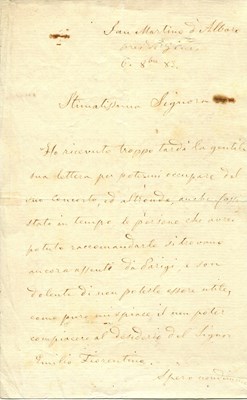 San Martino d'Albaro
6. Xbre 8
Stimatissimo Signora
Ho ricevuto troppo tardi la gentile
sua lettera per potermi occupare del
suo concerto, ed altronde, anche fossi
stato in tempo le persone che avrei
potuto raccomandarle si trovano
ancora assenti da Parigi, e son
dolente di non poterle essere utile,
come pure mi spiace il non poter
compiacere al desiderio del Signor
Emilio Fiorentino.
Spero